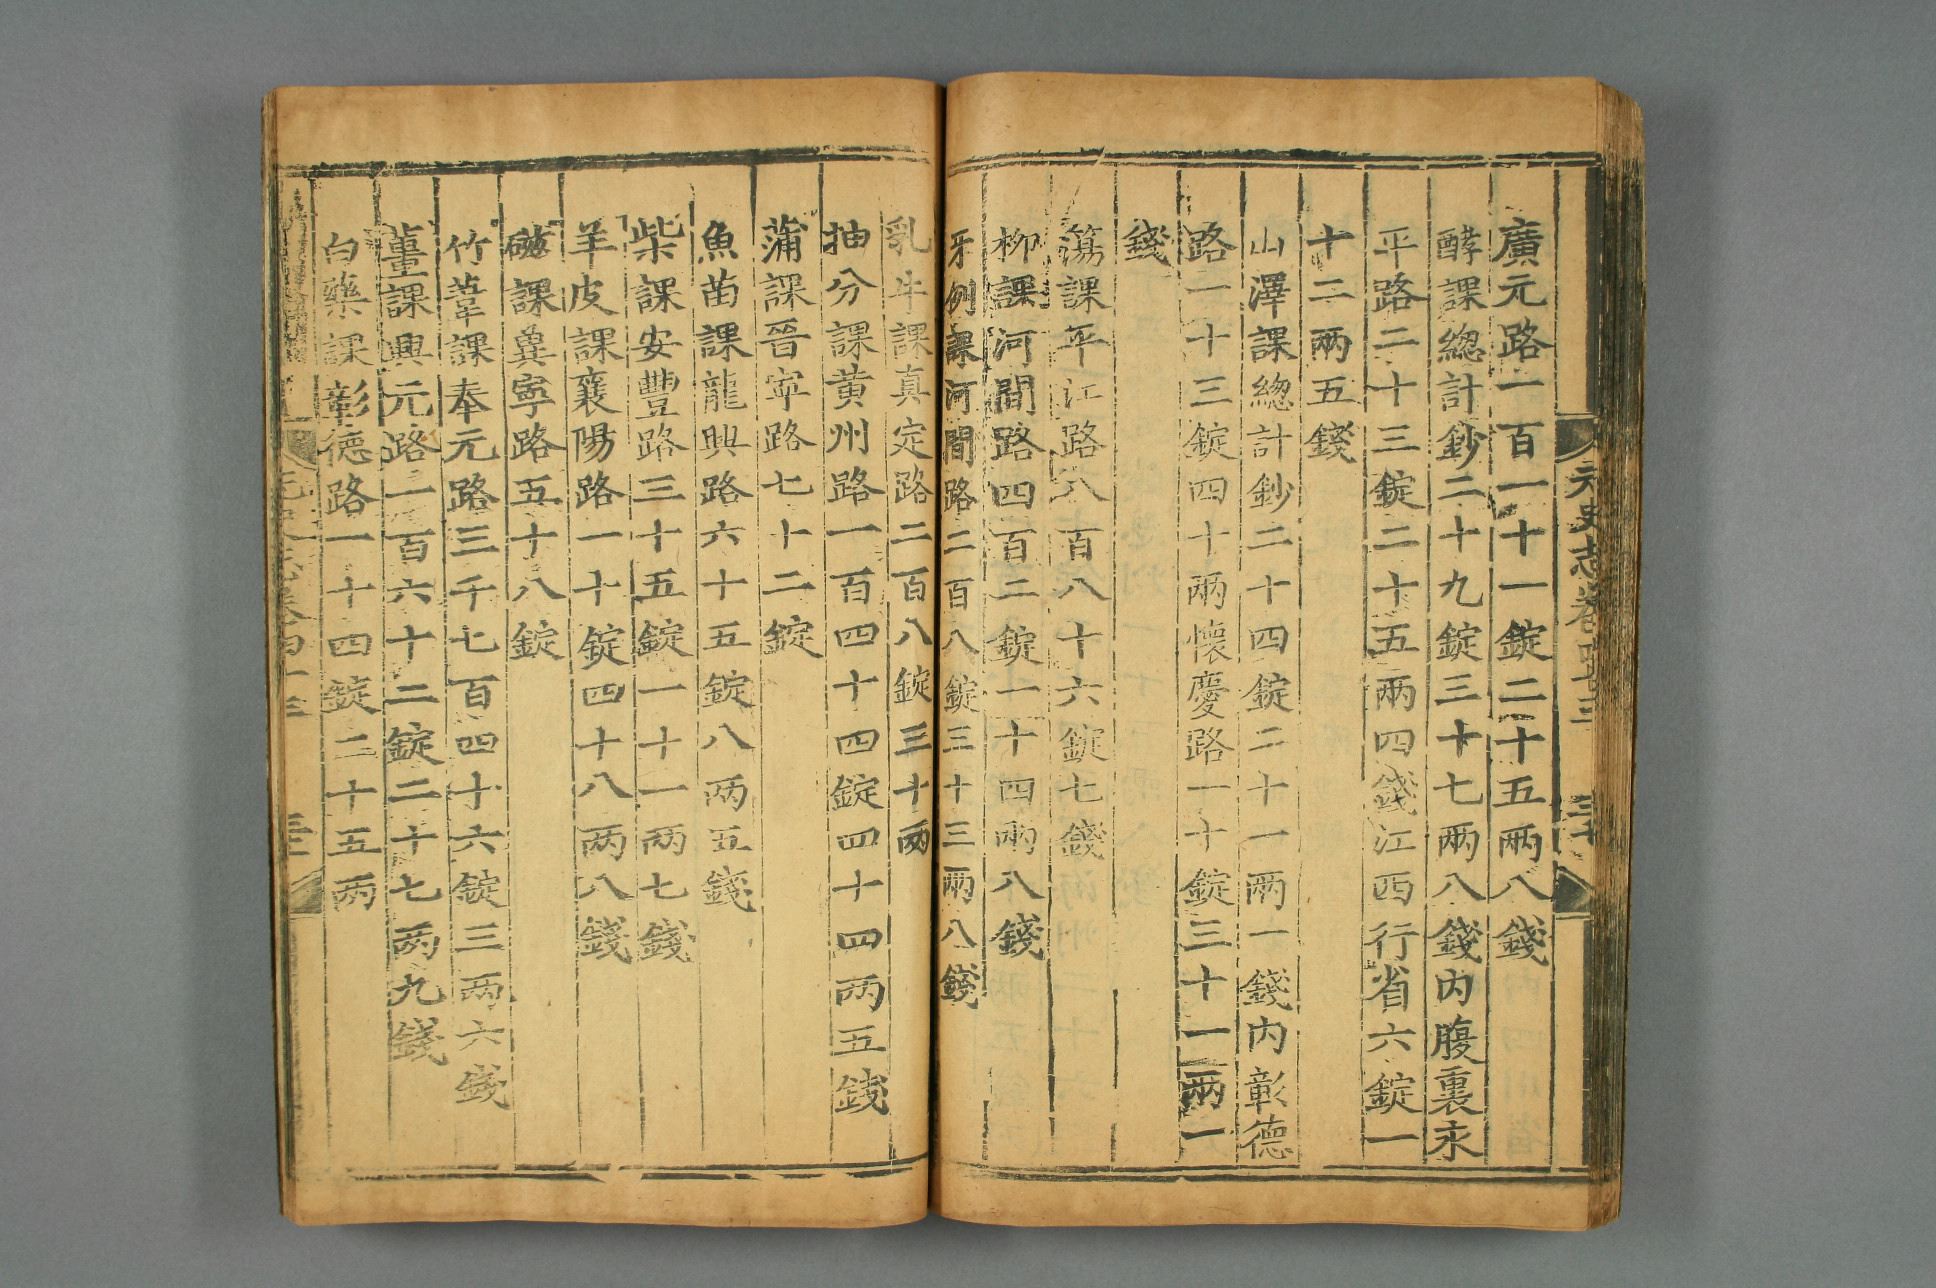 元史志卷四十三
三十
廣元路一百一十一錠二十五兩八錢
酵課總計鈔二十九錠三十七兩八錢內腹裏永
平路二十三錠二十五兩四錢江西行省六錠一
十二兩五錢
山澤課總計鈔二十四錠二十一兩一錢內彰德
路一十三錠四十兩懷慶路一十錠三十一兩一
錢
蕩課平江路八百八十六錠七錢
柳課河間路四百二錠一十四兩八錢
牙例課河間路二百八錠三十三兩八錢
乳牛課真定路二百八錠三十兩
抽分課黃州路一百四十四錠四十四兩五錢
蒲課晉寧路七十二錠
魚苗課龍興路六十五錠八兩五錢
柴課安豐路三十五錠一十一兩七錢
羊皮課襄陽路一十錠四十八兩八錢
磁課冀寧路五十八錠
竹葦課奉元路三千七百四十六錠三兩六錢
薑課興元路一百六十二錠二十七兩九錢
白藥課彰德路一十四錠二十五兩
元史志卷四十三